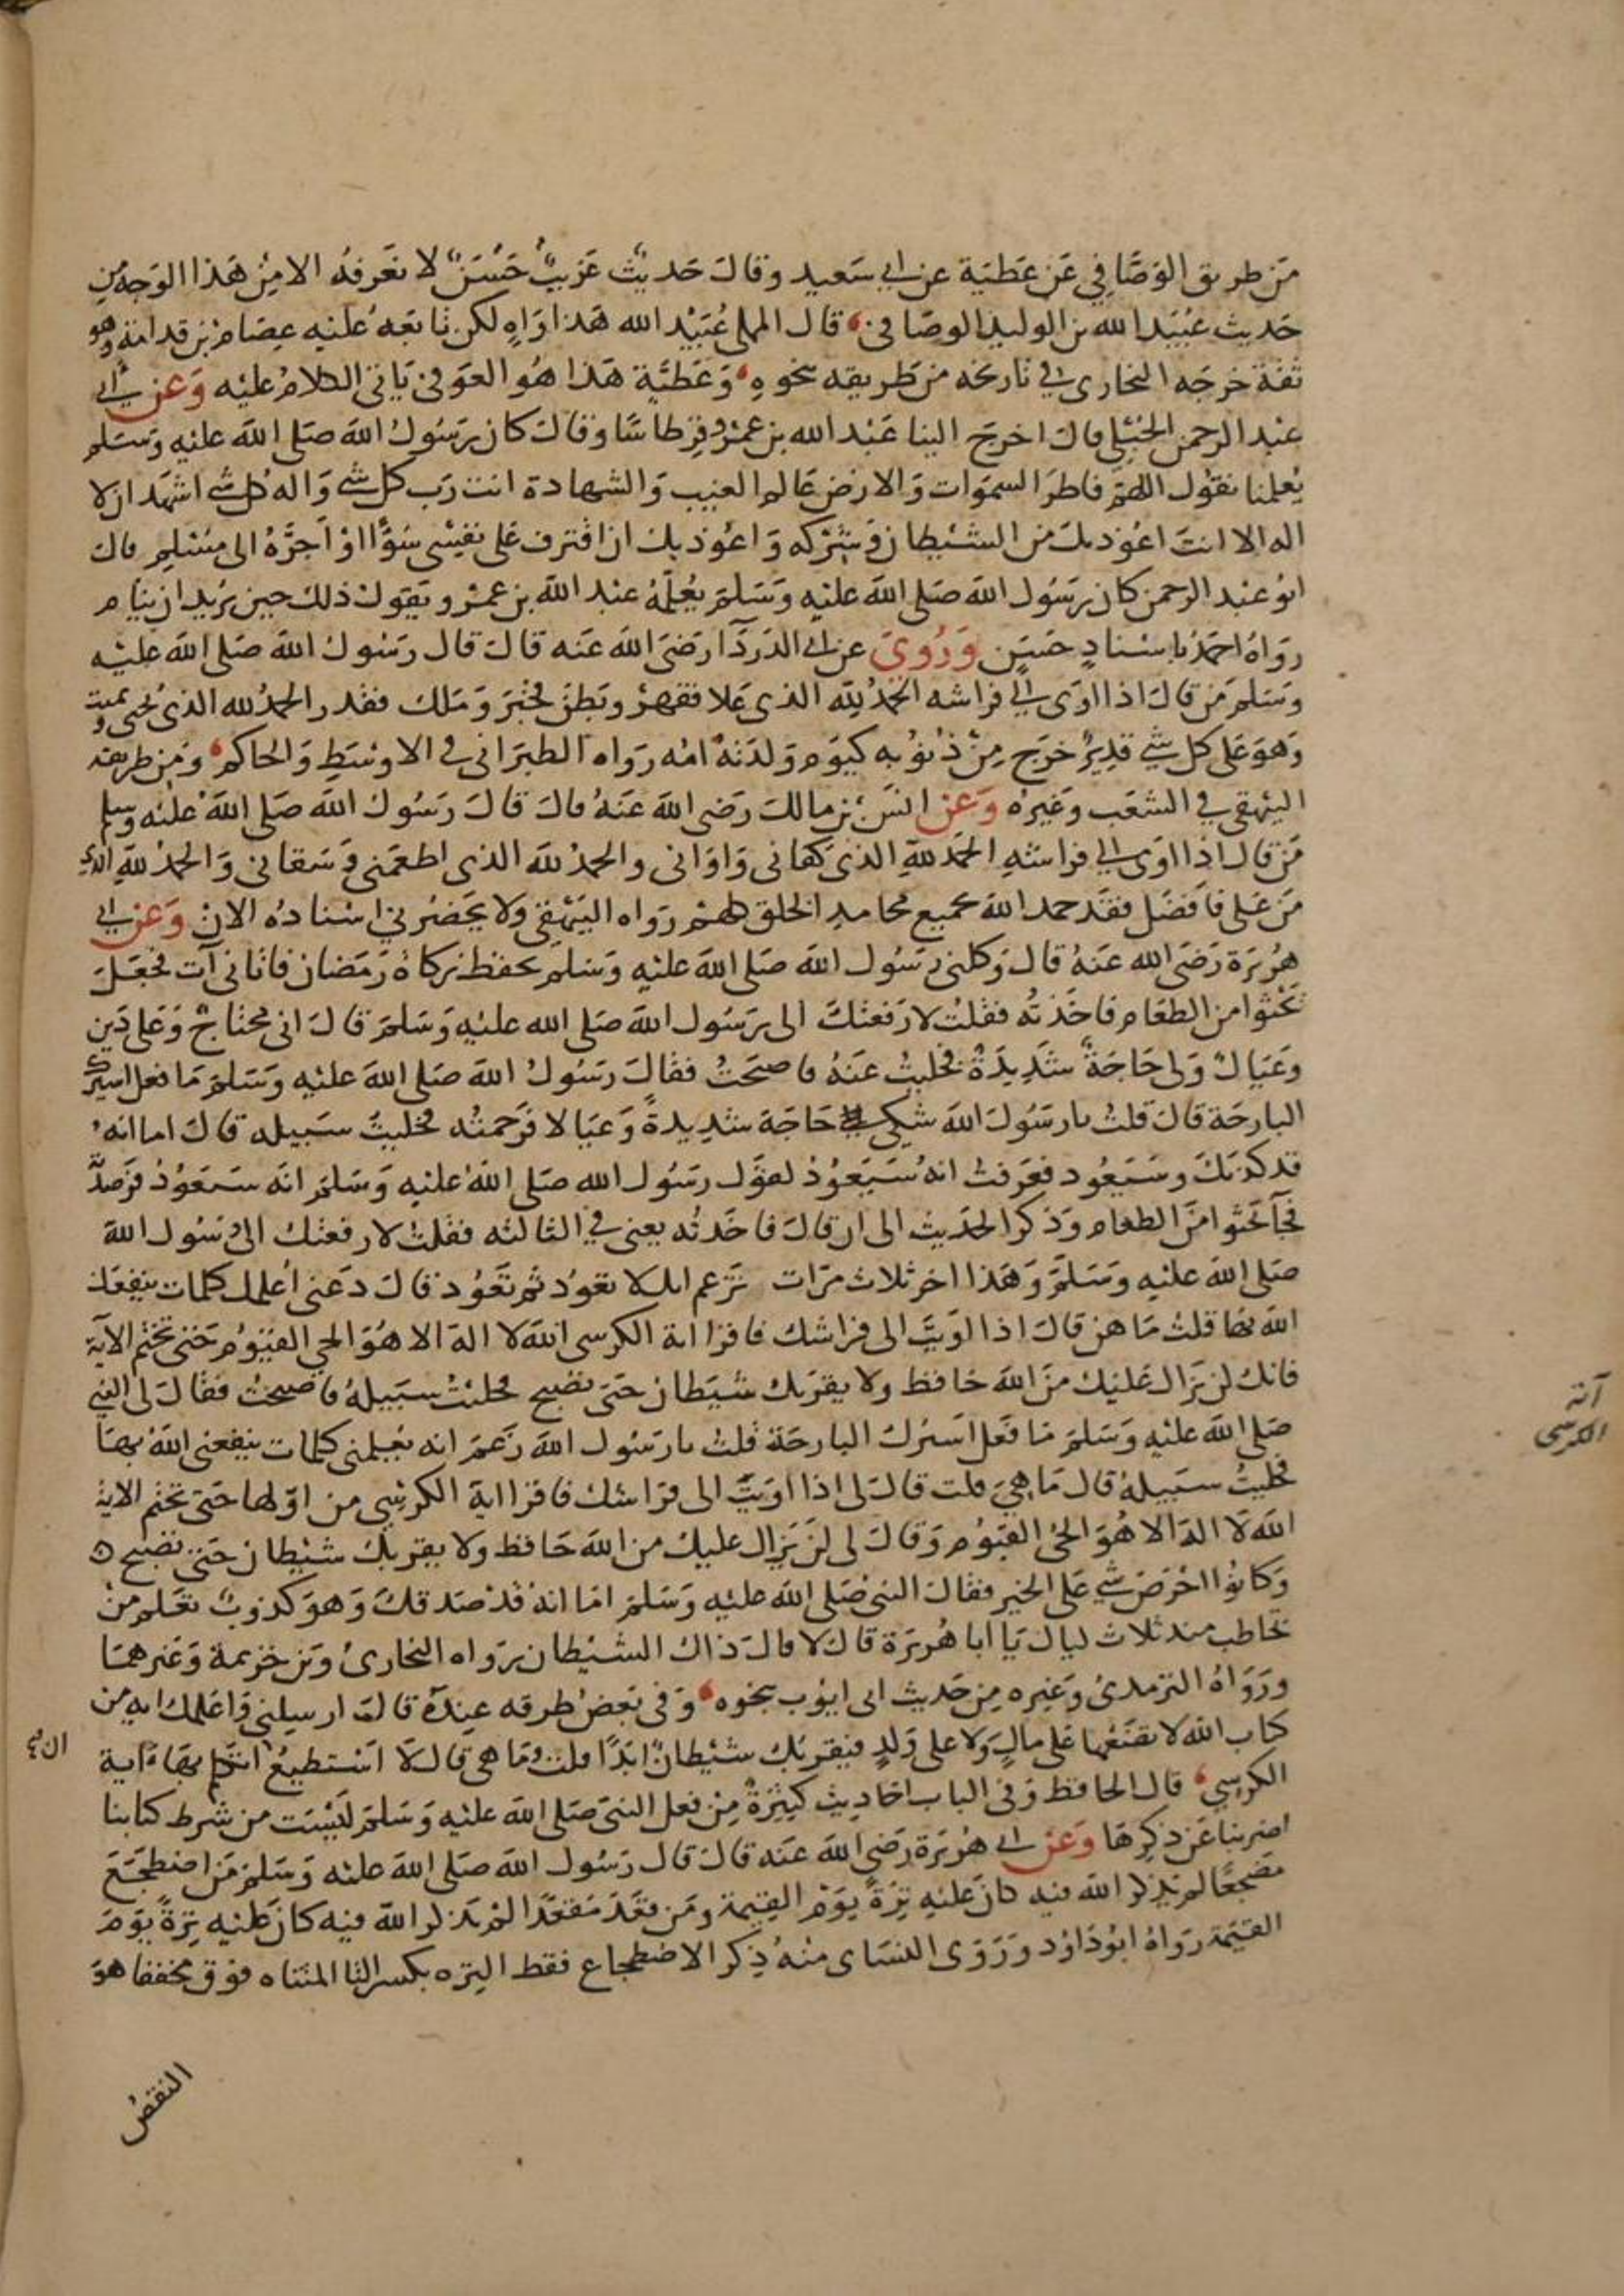 من طريق الوصافي عن عطية عن ابي سعيد وقال حديث غريب حسن لا نعرفه الا من هذا الوجه من
حديث عبيد الله بن الوليد الوصافي قال المملي عبيد الله هذا واه لكن تابعه عليه عصام بن قدامة وهو
ثقة خرجه البخاري في تاريخه من طريقه بنحوه وعطية هذا هو العوفي ياتي الكلام عليه وعن ابي
عبد الرحمن الحبلي قال اخرج الينا عبد الله بن عمرو قرطاسا وقال كان رسول الله صلى الله عليه وسلم
يعلمنا نقول اللهم فاطر السموات والارض عالم الغيب والشهادة انت رب كل شي واله كل شي اشهد ان لا
اله الا انت اعوذ بك من الشيطان وشركه واعوذ بك ان اقترف على نفسي سوًا او اجره الى مسلم قال
ابو عبد الرحمن كان رسول الله صلى الله عليه وسلم يعلمه عبد الله بن عمرو ويقول ذلك حين يريد ان ينام
رواه احمد باسناد حسن وروي عن ابي الدردآ رضي الله عنه قال قال رسول الله صلى الله عليه
وسلم من قال اذا اوى الى فراشه الحمد لله الذي علا فقهر وبطن فخبر وملك فقدر الحمد لله الذي يحيى ويميت
وهو على كل شي قدير خرج من ذنوبه كيوم ولدته امه رواه الطبراني في الاوسط والحاكم ومن طريقه
البيهقي في الشعب وغيره وعن انس بن مالك رضي الله عنه قال قال رسول الله صلى الله عليه وسلم
من قال اذا اوى الى فراشه الحمد لله الذي كفاني واواني والحمد لله الذي اطعمني وسقاني والحمد لله الذي
من علي فافضل فقد حمد الله بجميع محامد الخلق كلهم رواه البيهقي ولا يحضرني اسناده الان وعن ابي
هريرة رضي الله عنه قال وكلني رسول الله صلى الله عليه وسلم بحفظ زكاة رمضان فاتاني آت فجعل
يحثوا من الطعام فاخذته فقلت لارفعنك الى رسول الله صلى الله عليه وسلم قال اني محتاج وعلي دين
وعيال ولي حاجة شديدة فخليت عنه فاصبحت فقال رسول الله صلى الله عليه وسلم ما فعل اسيرك
البارحة قال قلت يارسول الله شكى حاجة شديدة وعيالا فرحمته فخليت سبيله قال اما انه
قد كذبك وسيعود فعرفت انه سيعود لقول رسول الله صلى الله عليه وسلم انه سيعود فرصدته
فجآ يحثوا من الطعام وذكر الحديث الى ان قال فاخذته يعني في الثالثه فقلت لارفعنك الى رسول الله
صلى الله عليه وسلم وهذا اخر ثلاث مرات تزعم انك لا تعود ثم تعود قال دعني اعلمك كلمات ينفعك
الله بها قلت ما هن قال اذا اويت الى فراشك فاقرا اية الكرسي الله لا اله الا هو الحي القيوم حتى تختم الآية
فانك لن يزال عليك من الله حافظ ولا يقربك شيطان حتى تصبح فخليت سبيله فاصبحت فقال لي النبي
صلى الله عليه وسلم ما فعل اسيرك البارحة قلت يا رسول الله زعم انه يعلمني كلمات ينفعني الله بها
فخليت سبيله قال ما هي قلت قال لي اذا اويت الى فراشك فاقرا اية الكرسي من اولها حتى تختم الاية
الله لا اله الا هو الحي القيوم وقال لي لن يزال عليك من الله حافظ ولا يقربك شيطان حتى تصبح
وكانوا احرص شي على الخير فقال النبي صلى الله عليه وسلم اما انه قد صدقك وهو كذوب تعلم من
تخاطب منذ ثلاث ليال يا ابا هريرة قال لا قال ذاك الشيطان رواه البخاري وبن خزيمة وغيرهما
ورواه الترمذي وغيره من حديث ابي ايوب بنحوه وفي بعض طرقه عنده قال ارسلني واعلمك اية من
كتاب الله لا تضعها على مال ولا على ولد فيقربك شيطان ابدا قلت وما هي قال لا استطيع ان اتكلم بها آية
الكرسي قال الحافظ وفي الباب احاديث كثيرة من فعل النبي صلى الله عليه وسلم ليست من شرط كتابنا
اضربنا عن ذكرها وعن ابي هريرة رضي الله عنه قال قال رسول الله صلى الله عليه وسلم من اضطجع
مضجعا لم يذكر الله فيه كان عليه ترة يوم القيمة ومن قعد مقعدا لم يذكر الله فيه كان عليه ترة يوم
القيمة رواه ابو داود وروى النساى منه ذكر الاضطجاع فقط الترة بكسر التا المثناه فوق مخففا هو
النقص
آية
الكرسي